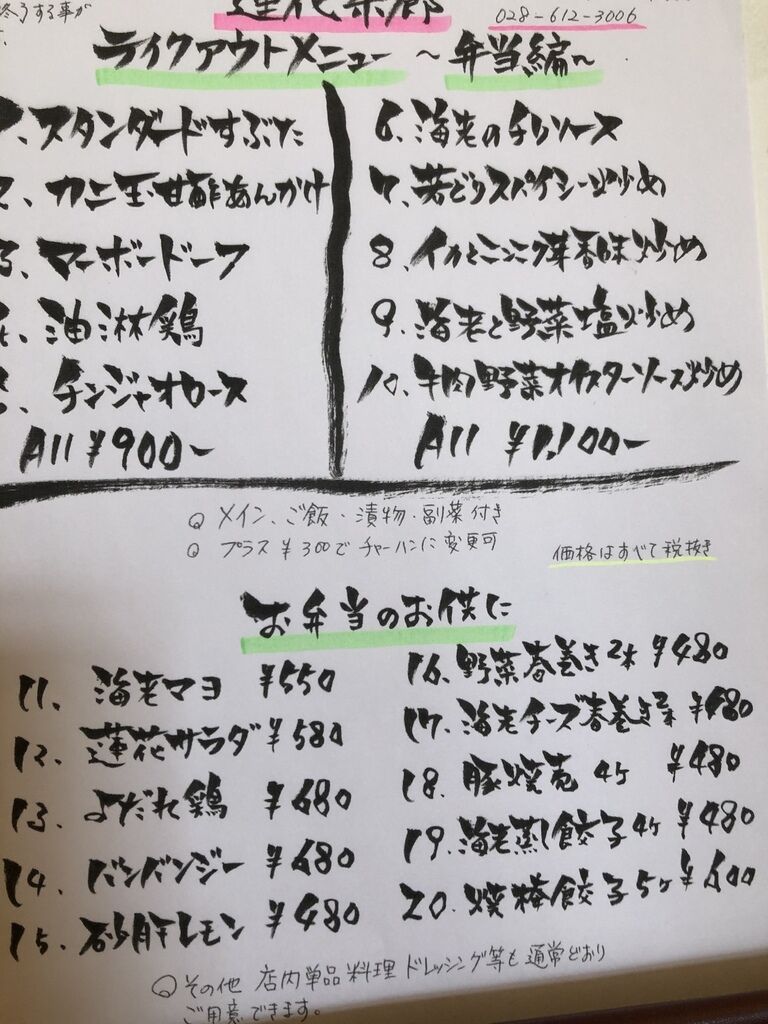 終了する事が
蓮花菜郷
028-612-3006
テイクアウトメニュー 〜弁当編〜
1、スタンダードすぶた
2、カニ玉甘酢あんかけ
3、マーボードーフ
4、油淋鶏
5、チンジャオロース
All ¥900〜
6、海老のチリソース
7、若どりスパイシー炒め
8、イカとニンニク芽香味炒め
9、海老と野菜塩炒め
10、牛肉野菜オイスターソース炒め
All ¥1,100〜
○ メイン、ご飯・漬物・副菜付き
○ プラス¥300でチャーハンに変更可
価格はすべて税抜き
お弁当のお供に
11、海老マヨ ¥550
12、蓮花サラダ ¥580
13、よだれ鶏 ¥680
14、バンバンジー ¥680
15、砂肝レモン ¥480
16、野菜春巻き2本 ¥480
17、海老チーズ春巻き2本 ¥480
18、豚焼売 4ヶ ¥480
19、海老蒸し餃子4ヶ ¥480
20、焼棒餃子5ヶ ¥600
○ その他 店内単品料理 ドレッシング等も通常どおり
ご用意できます。